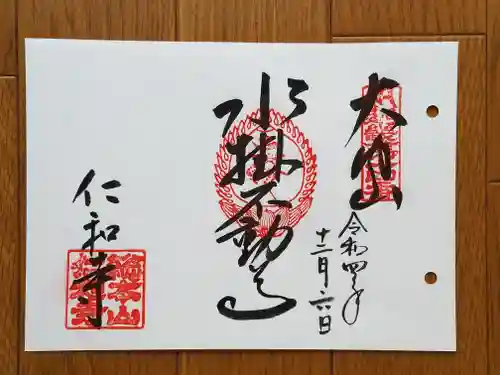 大内山
令和四年
十二月六日
水掛不動尊
仁和寺